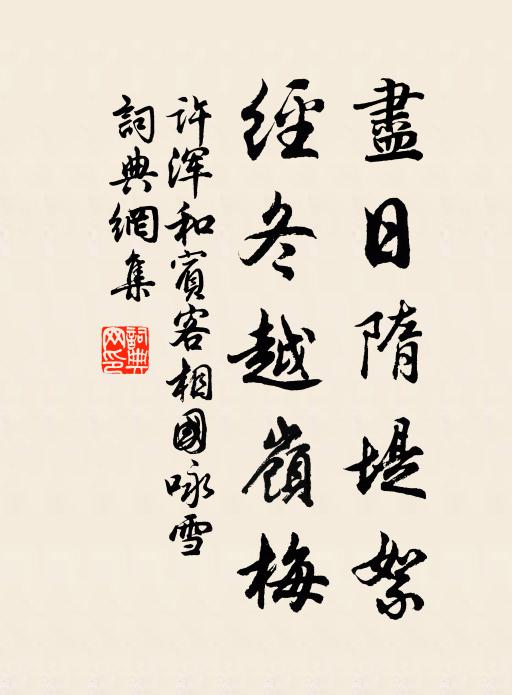 盡日隋堤絮
經冬越嶺梅
許渾和賓客相國咏雪
詞典網集
詞典网印